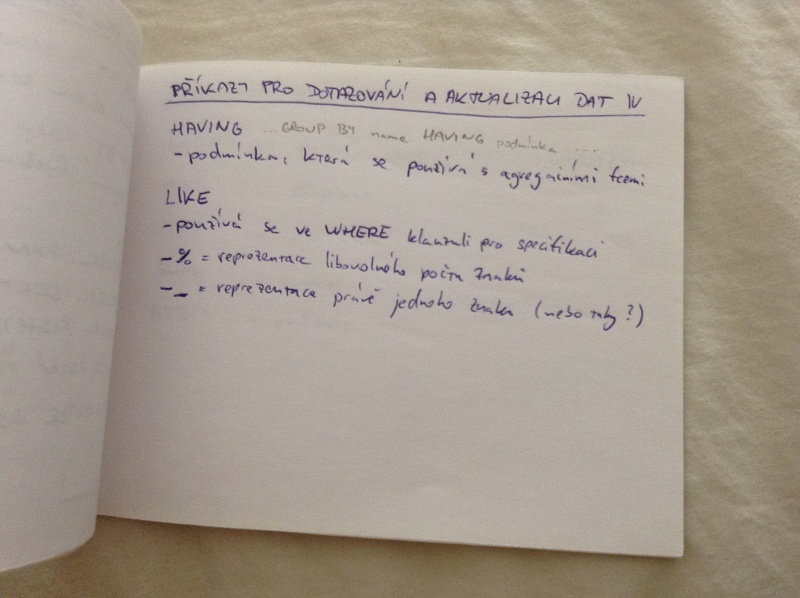 PŘÍKAZY PRO DOTAZOVÁNÍ A AKTUALIZACI DAT IV
HAVING ...GROUP BY name HAVING podmínka ...
- podmínka, která se používá s agregačními fcemi
LIKE
- používá se ve WHERE klauzuli pro specifikaci
- % = reprezentace libovolného počtu znaků
- _ = reprezentace právě jednoho znaku (nebo taky ?)